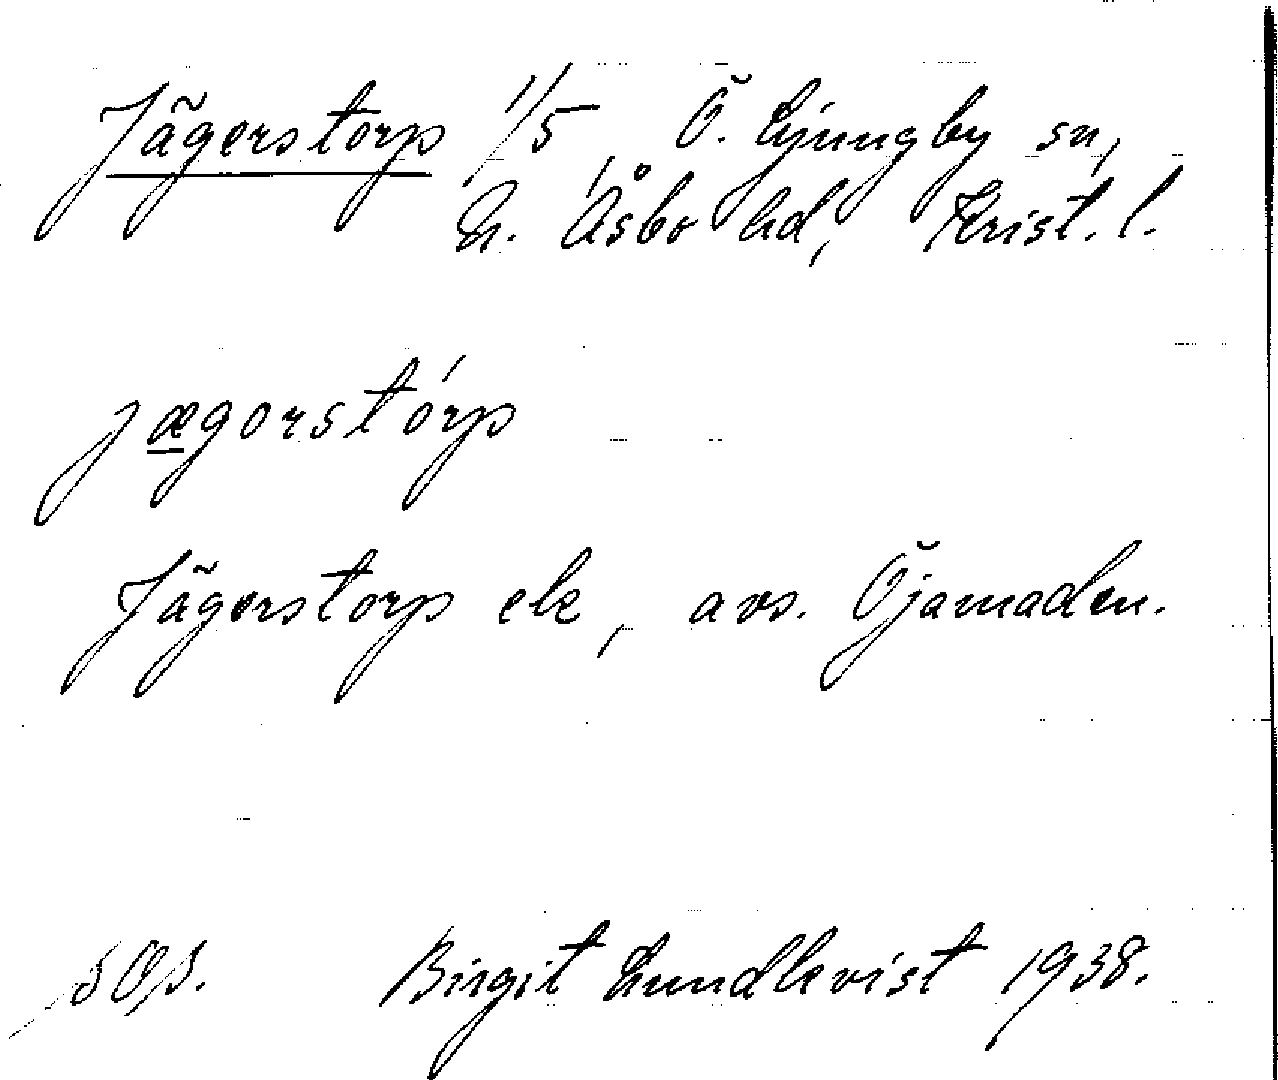 Jägerstorp 1/5, Ö. Ljungby sn,
N. Åsbo hd, Krist. l.
jægorstórp
Jägerstorp ek, avs. Öjamaden.
Birgit Lundkvist 1938.